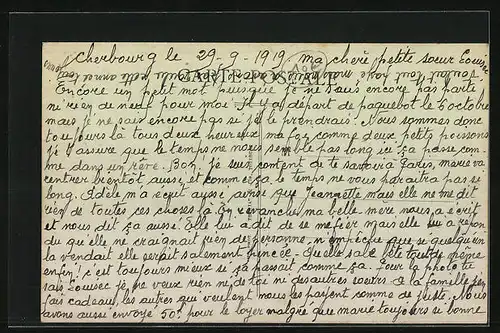 Cherbourg le 29-9-1919 ma chère petite sœur Louise
CARTE POSTALE
Encore un petit mot puisque je ne suis encore pas partie
ni rien de neuf pour moi il y a départ de paquebot le 6 octobre
mais je ne sais encore pas si je le prendrais. Nous sommes donc
toujours là tous deux heureux ma foi comme deux petits poissons
je t'assure que le temps ne nous semble pas long ici ça passe com
me dans un rêve. Bon je suis content de te savoir à Paris, marie va
rentrer bientôt aussi et comme ça le temps ne vous paraitra pas si
long. Adèle m'a écrit aussi ainsi que Jeannette mais elle ne me dit
rien de toutes ces choses là. En revanche ma belle mère nous a écrit
et nous dit ça aussi. Elle lui a dit de se méfier mais elle lui a répon
du qu'elle ne craignait rien de personne. n'empêche que si quelqu'un
la vendait elle serait salement pincée. Quelle sale tête tout de même
enfin! c'est toujours mieux si ça passait comme ça. Pour la photo tu
sais Louise je ne veux rien ni de toi ni des autres sœurs. à la famille j'en
fais cadeau, les autres qui veulent nous les payent comme de juste. Nous
avons aussi envoyé 50f pour le loyer malgré que marie toujours si bonne